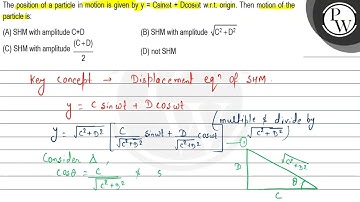 The position of a particle in motion is given by y = Csinωt + Dcosωt w.r.t. origin. Then motion of the particle is:
(A) SHM with amplitude C+D
(B) SHM with amplitude √C²+D²
(C) SHM with amplitude (C+D)/2
(D) not SHM
PW
Key concept → Displacement eqⁿ of SHM
y = C sinωt + D cosωt
(multiple & divide by √C²+D²)
y = √C²+D² [C/√C²+D² sinωt + D/√C²+D² cosωt] — ①
Consider Δ,
cosθ = C/√C²+D² & s
D
√C²+D²
θ
C